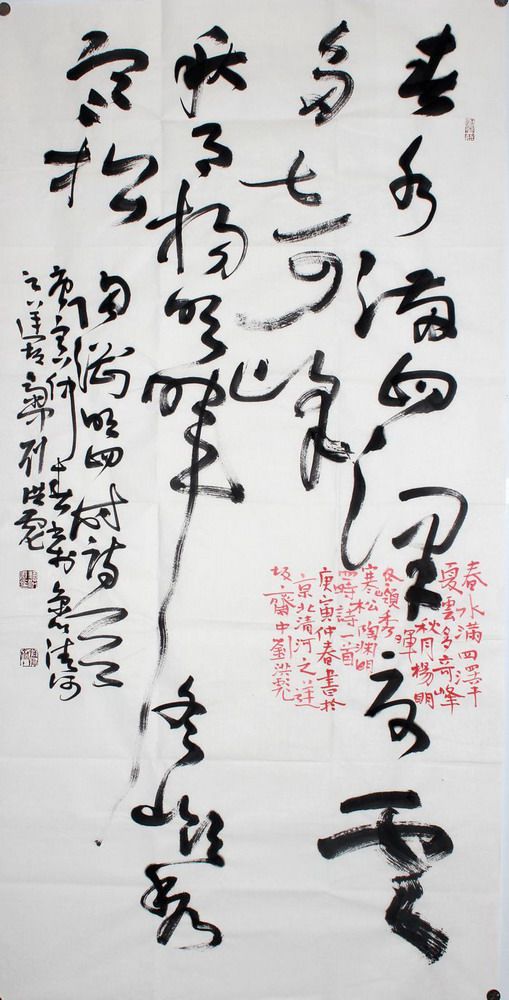 春水滿四澤夏雲
多奇峰
秋月揚明暉冬嶺秀
寒松
陶渊明四时詩一首
庚寅仲春書於京北清河
之蓮坂齋中劉洪彪
春水滿四澤
夏雲多奇峰
秋月楊明
暉
冬嶺秀
寒松陶渊明
四時詩一首
庚寅仲春書於
京北清河之蓮
坂齋中劉洪彪